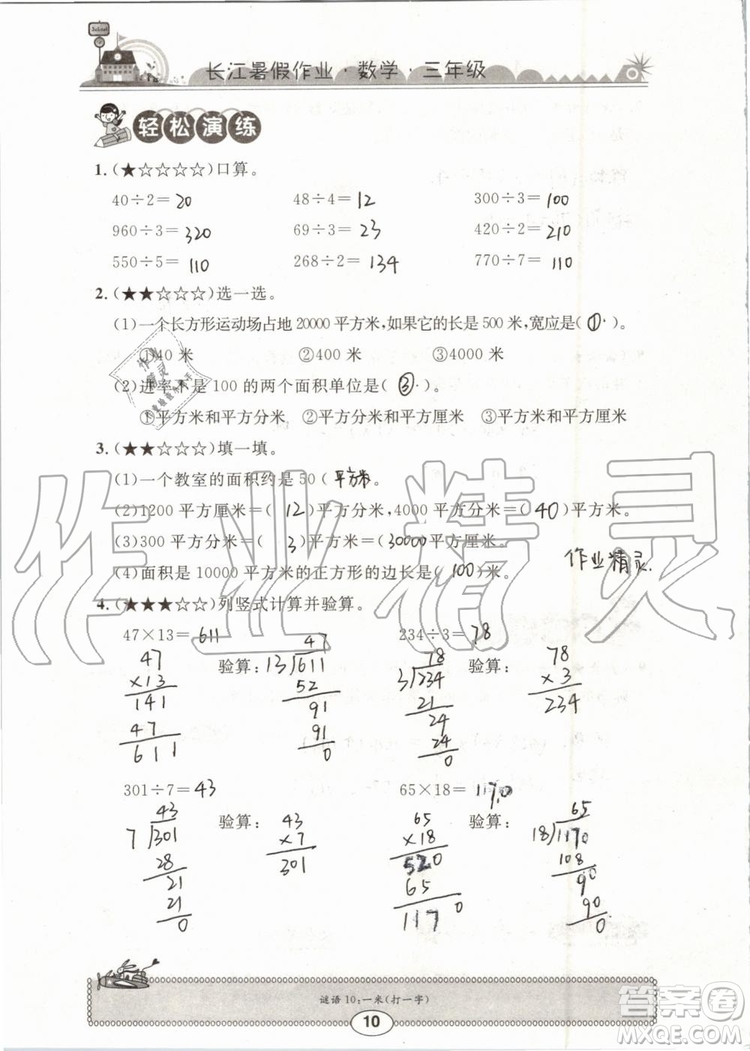 School
长江暑假作业·数学·三年级
轻松演练
1.(★☆☆☆☆)口算。
40÷2= 20 48÷4= 12 300÷3= 100
960÷3= 320 69÷3= 23 420÷2= 210
550÷5= 110 268÷2= 134 770÷7= 110
2.(★★☆☆☆)选一选。
(1)一个长方形运动场占地20000平方米,如果它的长是500米,宽应是( ① )。
①40米 ②400米 ③4000米
(2)进率不是100的两个面积单位是( ③ )。
①平方米和平方分米 ②平方分米和平方厘米 ③平方米和平方厘米
3.(★★☆☆☆)填一填。
(1)一个教室的面积约是50(平方米)。
(2)1200平方厘米=( 12 )平方分米,4000平方分米=( 40 )平方米。
(3)300平方分米=( 3 )平方米=(30000)平方厘米。
作业精灵.
(4)面积是10000平方米的正方形的边长是( 100 )米。
4.(★★★☆☆)列竖式计算并验算。
47×13= 611 234÷3= 78
47 验算: 47 78 验算: 78
×13 13 611 3 234 ×3
141 52 21 234
47 91 24
611 91 24
0 0
301÷7= 43 65×18= 1170
43 验算: 43 65 验算: 65
7 301 ×7 ×18 18 1170
28 301 520 108
21 65 90
21 1170 90
0 0
作业精灵
谜语10:一米(打一字)
10
答案圈
MXQE.COM